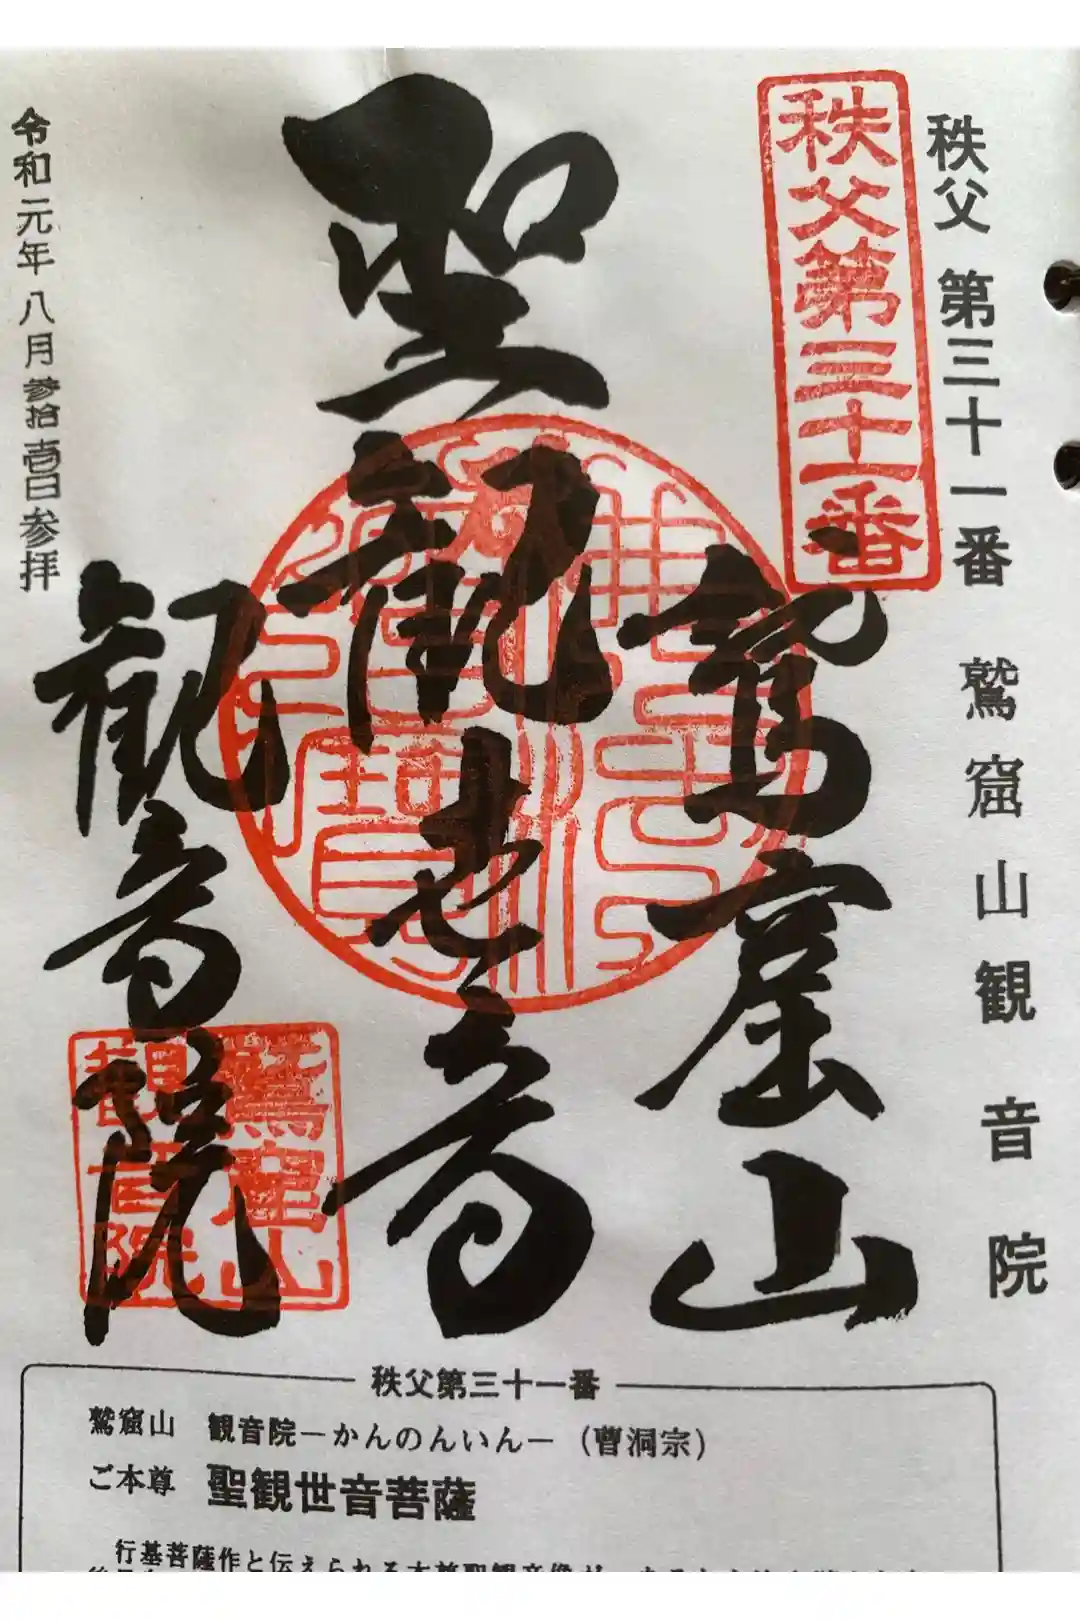 秩父 第三十一番 鷲窟山観音院
秩父第三十一番
鷲窟山
聖観世音
観音院
鷲窟山
観音院
令和元年八月参拾壱日参拝
秩父第三十一番
鷲窟山 観音院―かんのんいん―(曹洞宗)
ご本尊 聖観世音菩薩
行基菩薩作と伝えられる本尊聖観音像が、